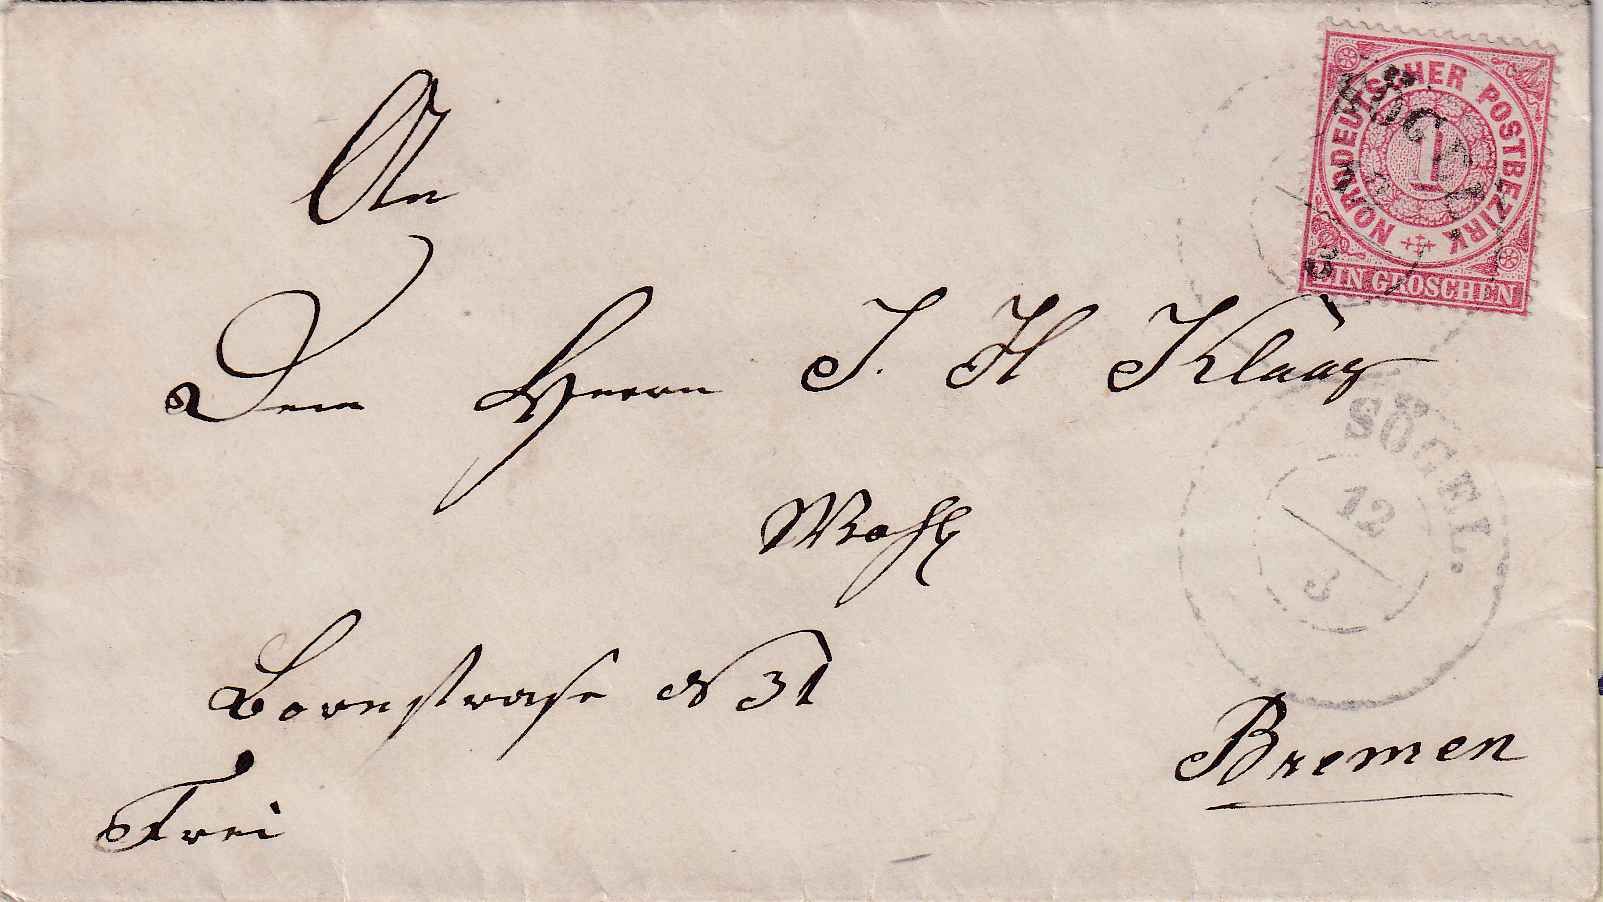 An
NORDDEUTSCHER POSTBEZIRK
1
EIN GROSCHEN
SÖGEL.
Dem Herrn J. H Klaas
SÖGEL.
12
3
Wohlg
Bornstrase № 31
Bremen
Frei